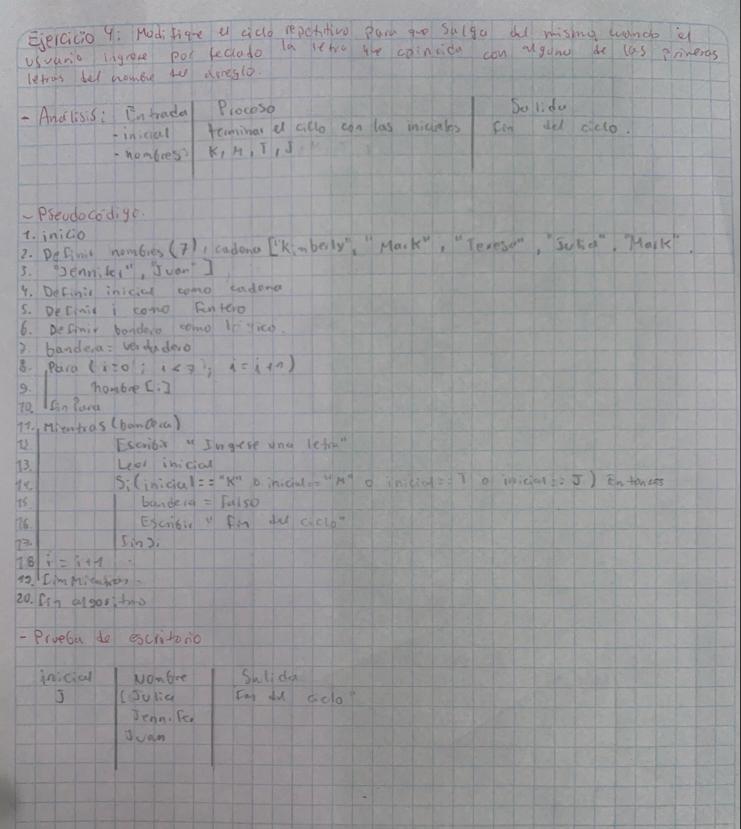 Ejercicio 4: Modifique el ciclo repetitivo para que salga del mismo cuando el
usuario ingrese por teclado la letra que coincida con alguna de las primeras
letras del nombre del arreglo.
- Análisis: Entrada Proceso Salida
- inicial terminar el ciclo con las iniciales Fin del ciclo.
- nombres K, M, T, J
- Pseudocódigo.
1. inicio
2. Definir nombres (7), cadena ["Kimberly", "Mark", "Teresa", "Julia", "Mark",
3. "Jennifer", "Juan"]
4. Definir inicial como cadena
5. Definir i como Entero
6. Definir bandera como lógico.
7. bandera = verdadero
8. Para (i=0; i<7; i=i+1)
9. nombre [i]
10. Fin Para
11. Mientras (bandera)
12 Escribir "Ingrese una letra"
13. Leer inicial
14. Si (inicial == "K" o inicial == "M" o inicial == T o inicial == J) Entonces
15 bandera = Falso
16. Escribir "Fin del ciclo"
17. FinSi
18 i = i+1
19. Fin Mientras
20. Fin algoritmo
- Prueba de escritorio
inicial Nombre Salida
J Julia Fin del ciclo"
Jennifer
Juan